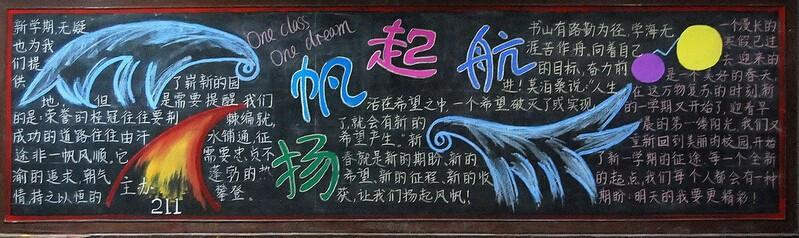 新学期,无疑
也为我
们提
供 了崭新的园
地,但 是需要提醒我们
的是:荣誉的桂冠往往要荆 棘编就,
成功的道路往往由汗 水铺通,征
途非一帆风顺,它 需要忠贞不
渝的追求,朝气 蓬勃的
情,持之以恒的 攀登。
主办:
211
One class
One dream
扬帆起航
书山有路勤为径,学海无
涯苦作舟。向着自己
的目标,奋力前
进!莫泊桑说:“人生
活在希望之中,一个希望破灭了或实现
了,就会有新的
希望产生。”新
春就是新的期盼、新的
希望、新的征程、新的收
获,让我们扬起风帆!
一个漫长的
寒假已过
去 迎来的
是一个美好的春天,
在这万物复苏的时刻,新
的一学期又开始了,迎着早
晨的第一缕阳光,我们又
重新回到美丽的校园,开始
了新一学期的征途。每一个全新
的起点,我们每个人都会有一种
期盼:明天的我要更精彩!